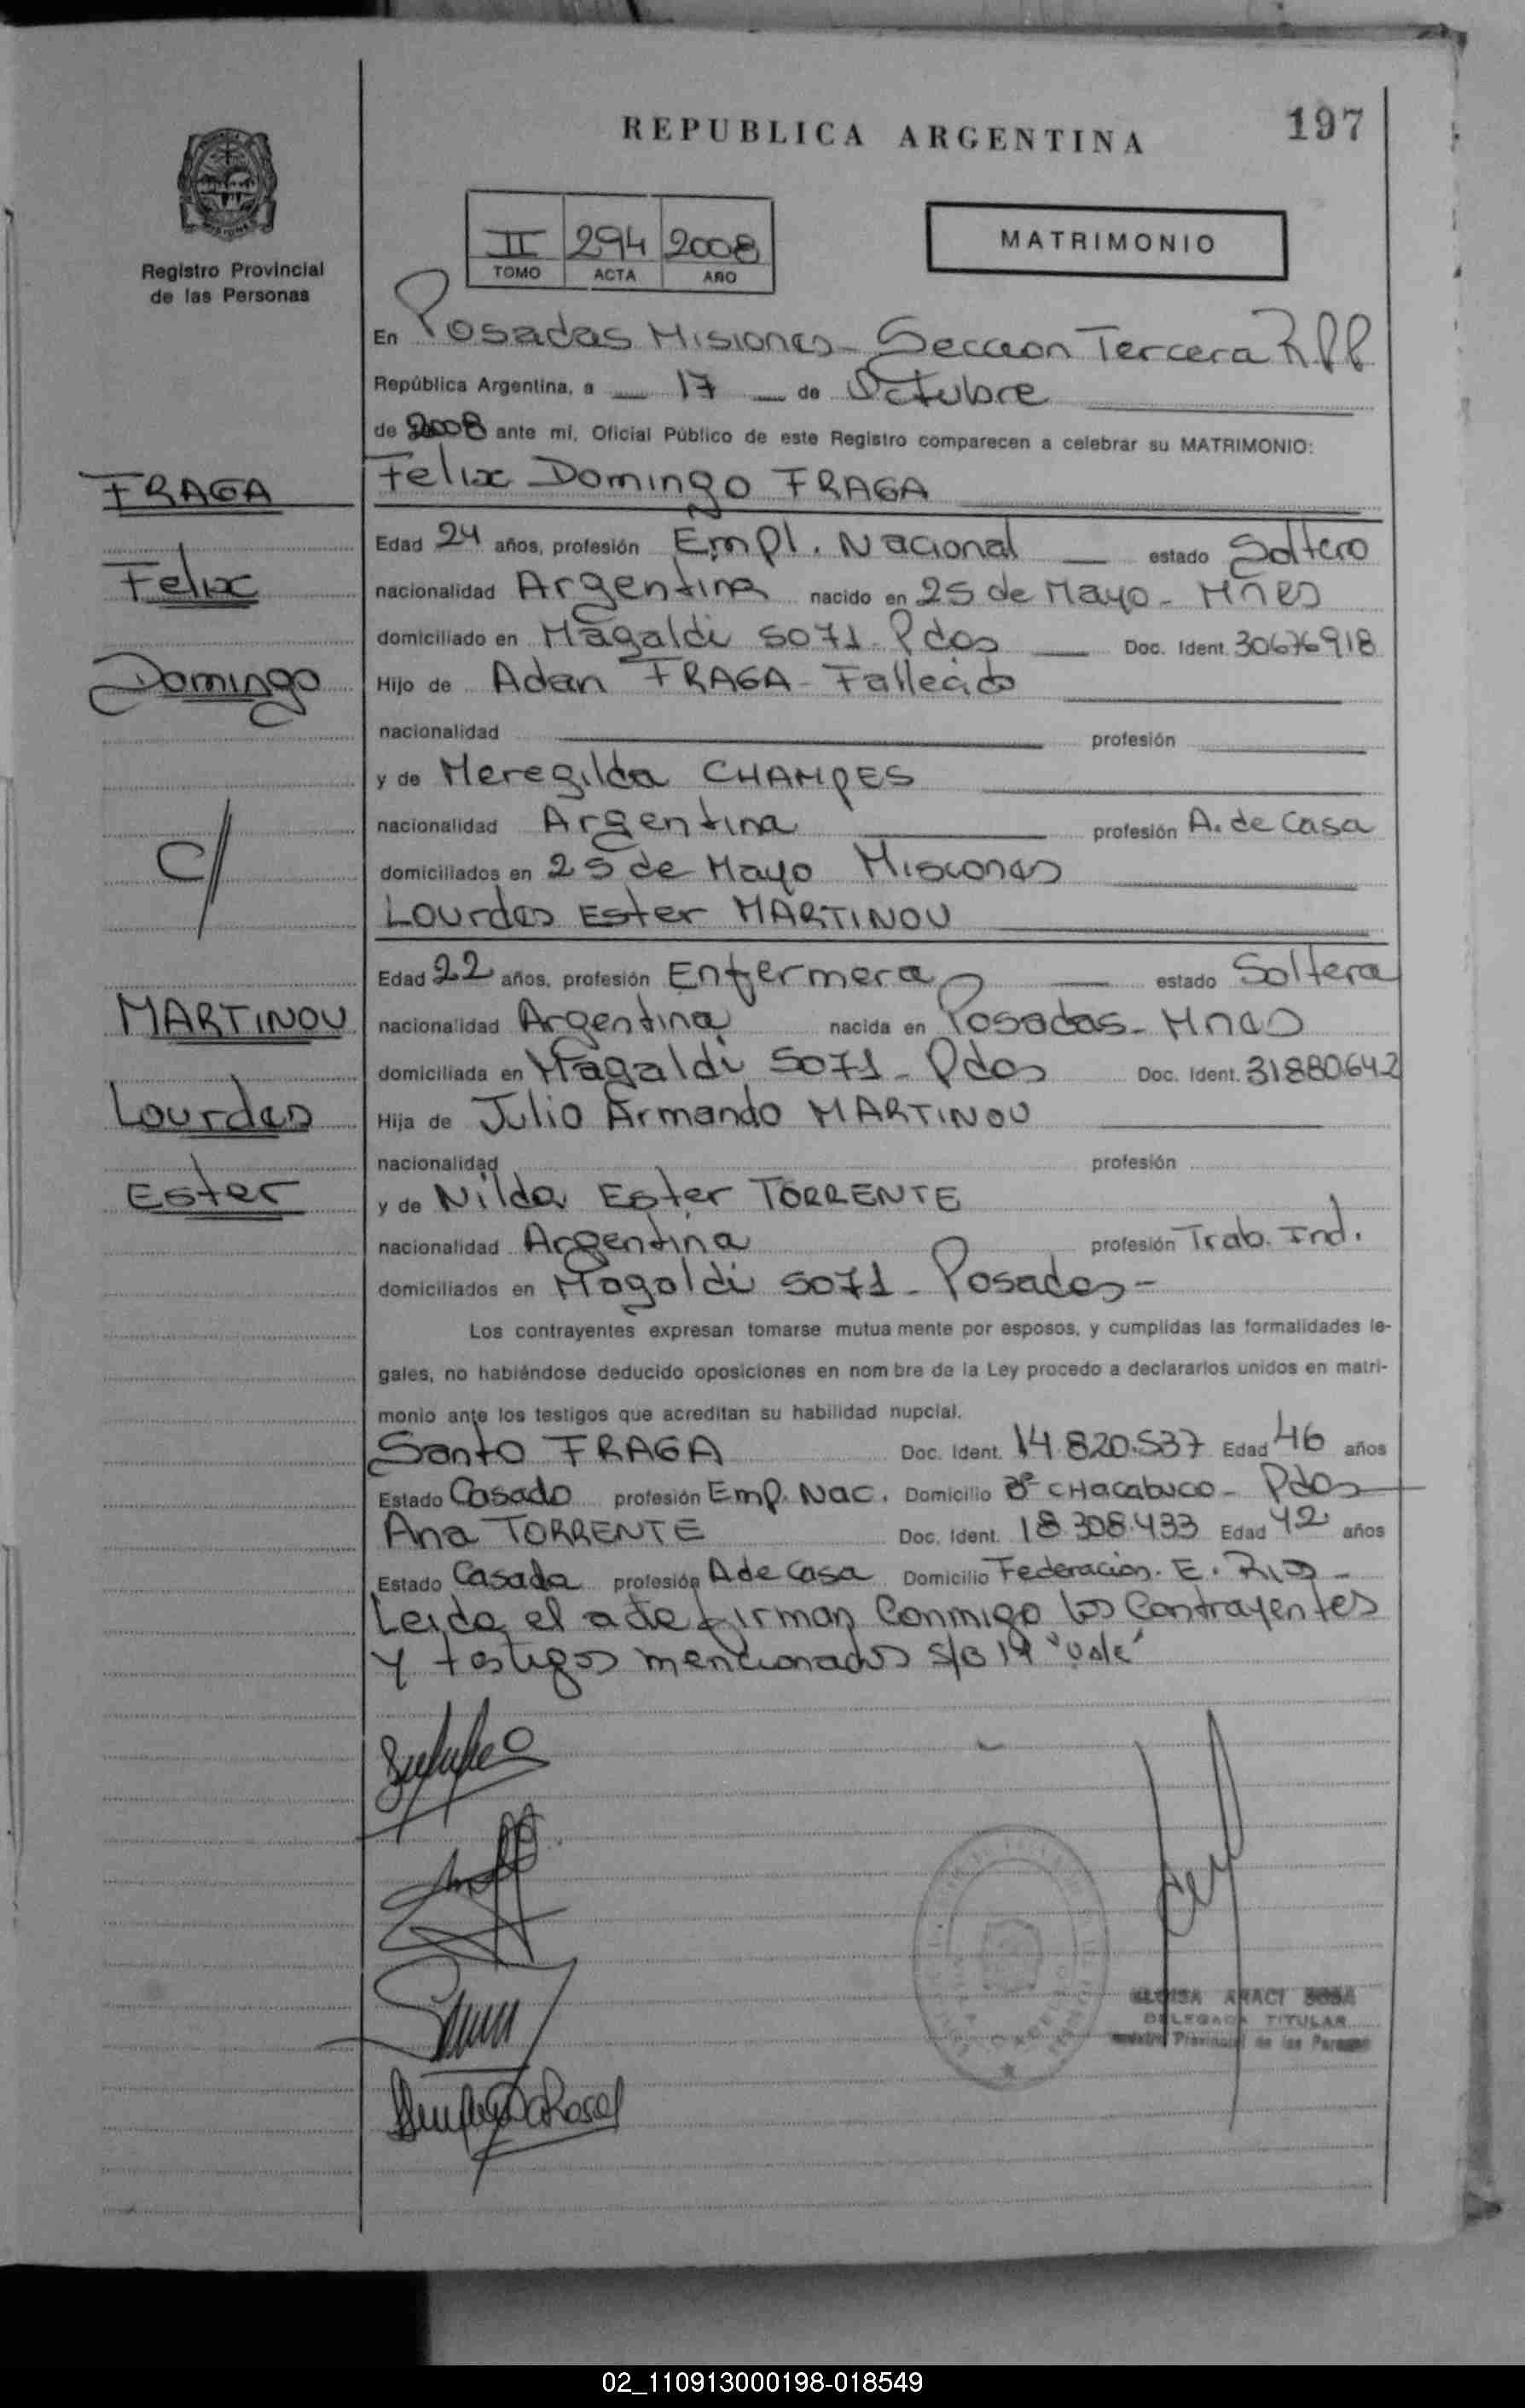 REPUBLICA ARGENTINA
197
Registro Provincial
de las Personas
II 294 2008
TOMO ACTA AÑO
MATRIMONIO
En Posadas Misiones - Seccion Tercera RPP
República Argentina, a 17 de Octubre
de 2008 ante mi, Oficial Público de este Registro comparecen a celebrar su MATRIMONIO:
Felix Domingo FRAGA
FRAGA
Edad 24 años, profesión Empl. Nacional estado Soltero
Felix
nacionalidad Argentina nacido en 25 de Mayo - Mnes
domiciliado en Magaldi 5071 - Pdas Doc. Ident. 30676918
Domingo
Hijo de Adan FRAGA - Fallecido
nacionalidad profesión
y de Meregilda CHAMPES
nacionalidad Argentina profesión A. de Casa
C/
domiciliados en 25 de Mayo Misiones
Lourdes Ester MARTINOU
Edad 22 años, profesión Enfermera estado Soltera
MARTINOU
nacionalidad Argentina nacida en Posadas - Mnes
domiciliada en Magaldi 5071 - Pdas Doc. Ident. 31880.642
Lourdes
Hija de Julio Armando MARTINOU
nacionalidad profesión
Ester
y de Nilda Ester TORRENTE
nacionalidad Argentina profesión Trab. Ind.
domiciliados en Magaldi 5071 - Posadas -
Los contrayentes expresan tomarse mutua mente por esposos, y cumplidas las formalidades le-
gales, no habiéndose deducido oposiciones en nom bre de la Ley procedo a declararlos unidos en matri-
monio ante los testigos que acreditan su habilidad nupcial.
Santo FRAGA Doc. Ident. 14.820.537 Edad 46 años
Estado Casado profesión Emp. Nac. Domicilio Bº CHacabuco - Pdas
Ana TORRENTE Doc. Ident. 18.308.433 Edad 42 años
Estado Casada profesión A de Casa Domicilio Federacion. E. Rios -
Leida el acta firman Conmigo los Contrayentes
y testigos mencionados S/B 19 "Vale"
ARACI SOSA
DELEGADA TITULAR
Registro Provincial de las Personas
02_110913000198-018549